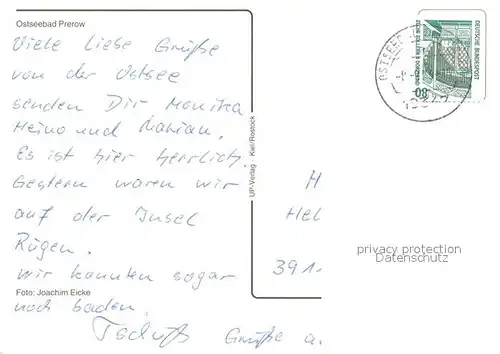 Ostseebad Prerow
Viele liebe Grüße
von der Ostsee
senden Dir Monika
Heino und Marian.
Es ist hier herrlich.
Gestern waren wir
auf der Insel
Rügen.
Wir konnten sogar
noch baden.
Tschüß Grüße a
Foto: Joachim Eicke
UP-Verlag · Kiel/Rostock
OSTSEEB
DEUTSCHE BUNDESPOST
80
H
Hel
391
privacy protection
Datenschutz